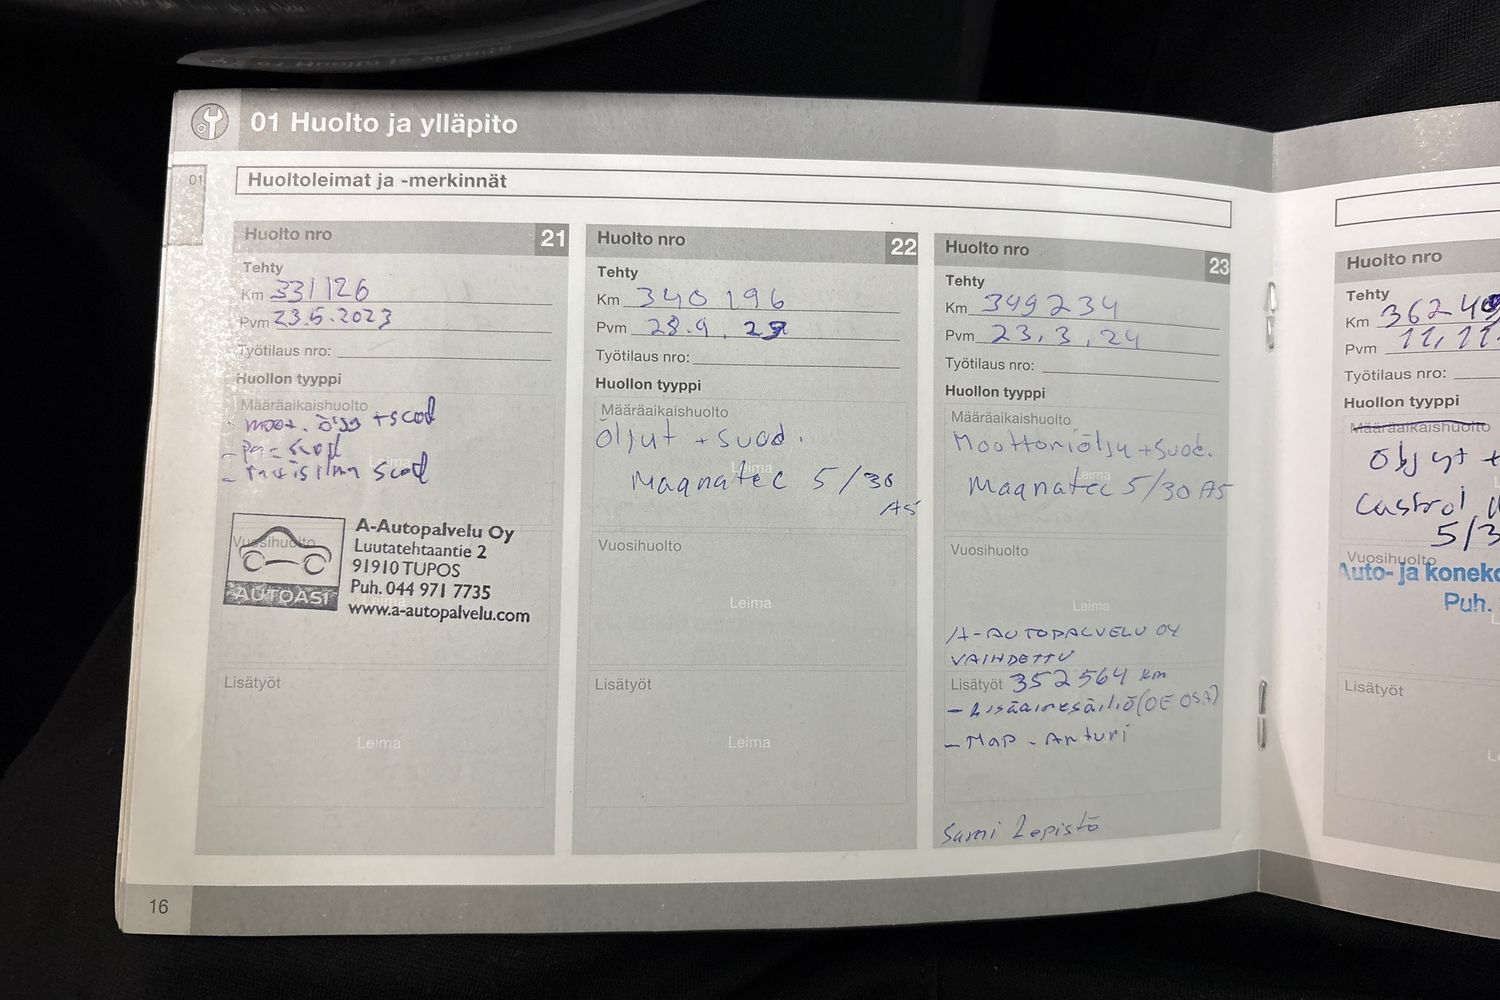 01 Huolto ja ylläpito
01
Huoltoleimat ja -merkinnät
Huolto nro 21
Tehty
Km 331126
Pvm 23.5.2023
Työtilaus nro:
Huollon tyyppi
Määräaikaishuolto
- moot. öljy +suod
- suod
- raitisilma suod
Leima
Vuosihuolto
AUTOASI
A-Autopalvelu Oy
Luutatehtaantie 2
91910 TUPOS
Puh. 044 971 7735
www.a-autopalvelu.com
Leima
Lisätyöt
Leima
Huolto nro 22
Tehty
Km 340 196
Pvm 28.9.23
Työtilaus nro:
Huollon tyyppi
Määräaikaishuolto
Öljyt + suod.
Leima
Magnatec 5/30
A5
Vuosihuolto
Leima
Lisätyöt
Leima
Huolto nro 23
Tehty
Km 349234
Pvm 23.3.24
Työtilaus nro:
Huollon tyyppi
Määräaikaishuolto
Moottoriöljy +suod.
Leima
Magnatec 5/30 A5
Vuosihuolto
Leima
A-AUTOPALVELU OY
VAIHDETTU
Lisätyöt 352564 km
- Lisäainesäiliö (OE OSA)
- MAP - Anturi
Sami Lepistö
Huolto nro
Tehty
Km 36240
Pvm 11.11.
Työtilaus nro:
Huollon tyyppi
Määräaikaishuolto
Öljyt +
Castrol
5/3
Vuosihuolto
Auto- ja koneko
Puh.
Lisätyöt
16